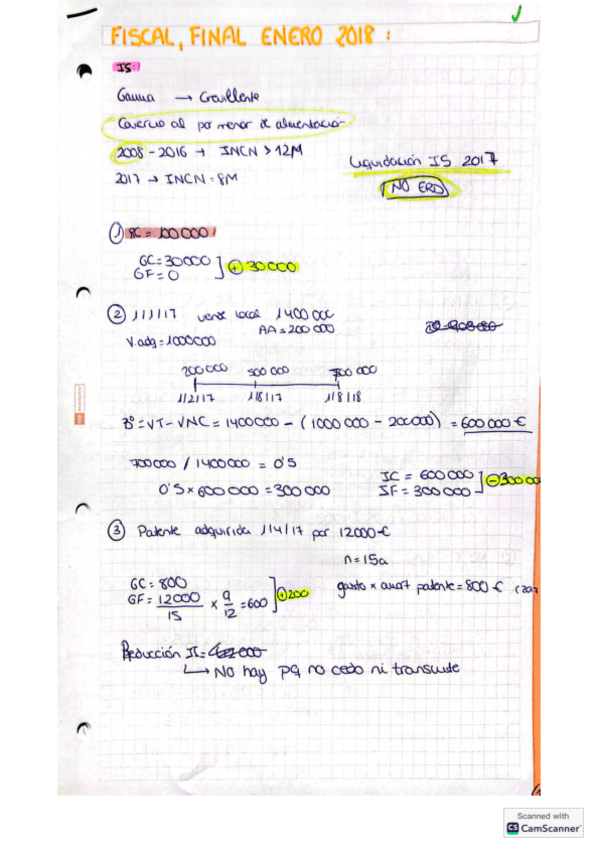 FISCAL, FINAL ENERO 2018 :
IS:
Gamma → Crevillente
Comercio al por menor de alimentación
2008 - 2016 → INCN > 12M
Liquidación IS 2017
2017 → INCN = 8M
NO ERD
① RC = 100000
GC = 30000
GF = 0
⊕ 30000
② 1/1/17 vende local 1400 000
AA = 200 000
V.adq = 1000000
200 000 500 000 700 000
1/2/17 1/8/17 1/8/18
Bº = VT - VNC = 1400000 - (1000 000 - 200000) = 600 000 €
700000 / 1400000 = 0'5
0'5 x 600 000 = 300000
IC = 600000
IF = 300000
⊖ 300 000
③ Patente adquirida 1/4/17 por 12000€
n = 15a
GC = 800
GF = 12000/15 x 9/12 = 600
⊕ 200
gasto x amort patente = 800 €
Reducción II =
↳ No hay pq no cedo ni transmite
Scanned with
CS CamScanner